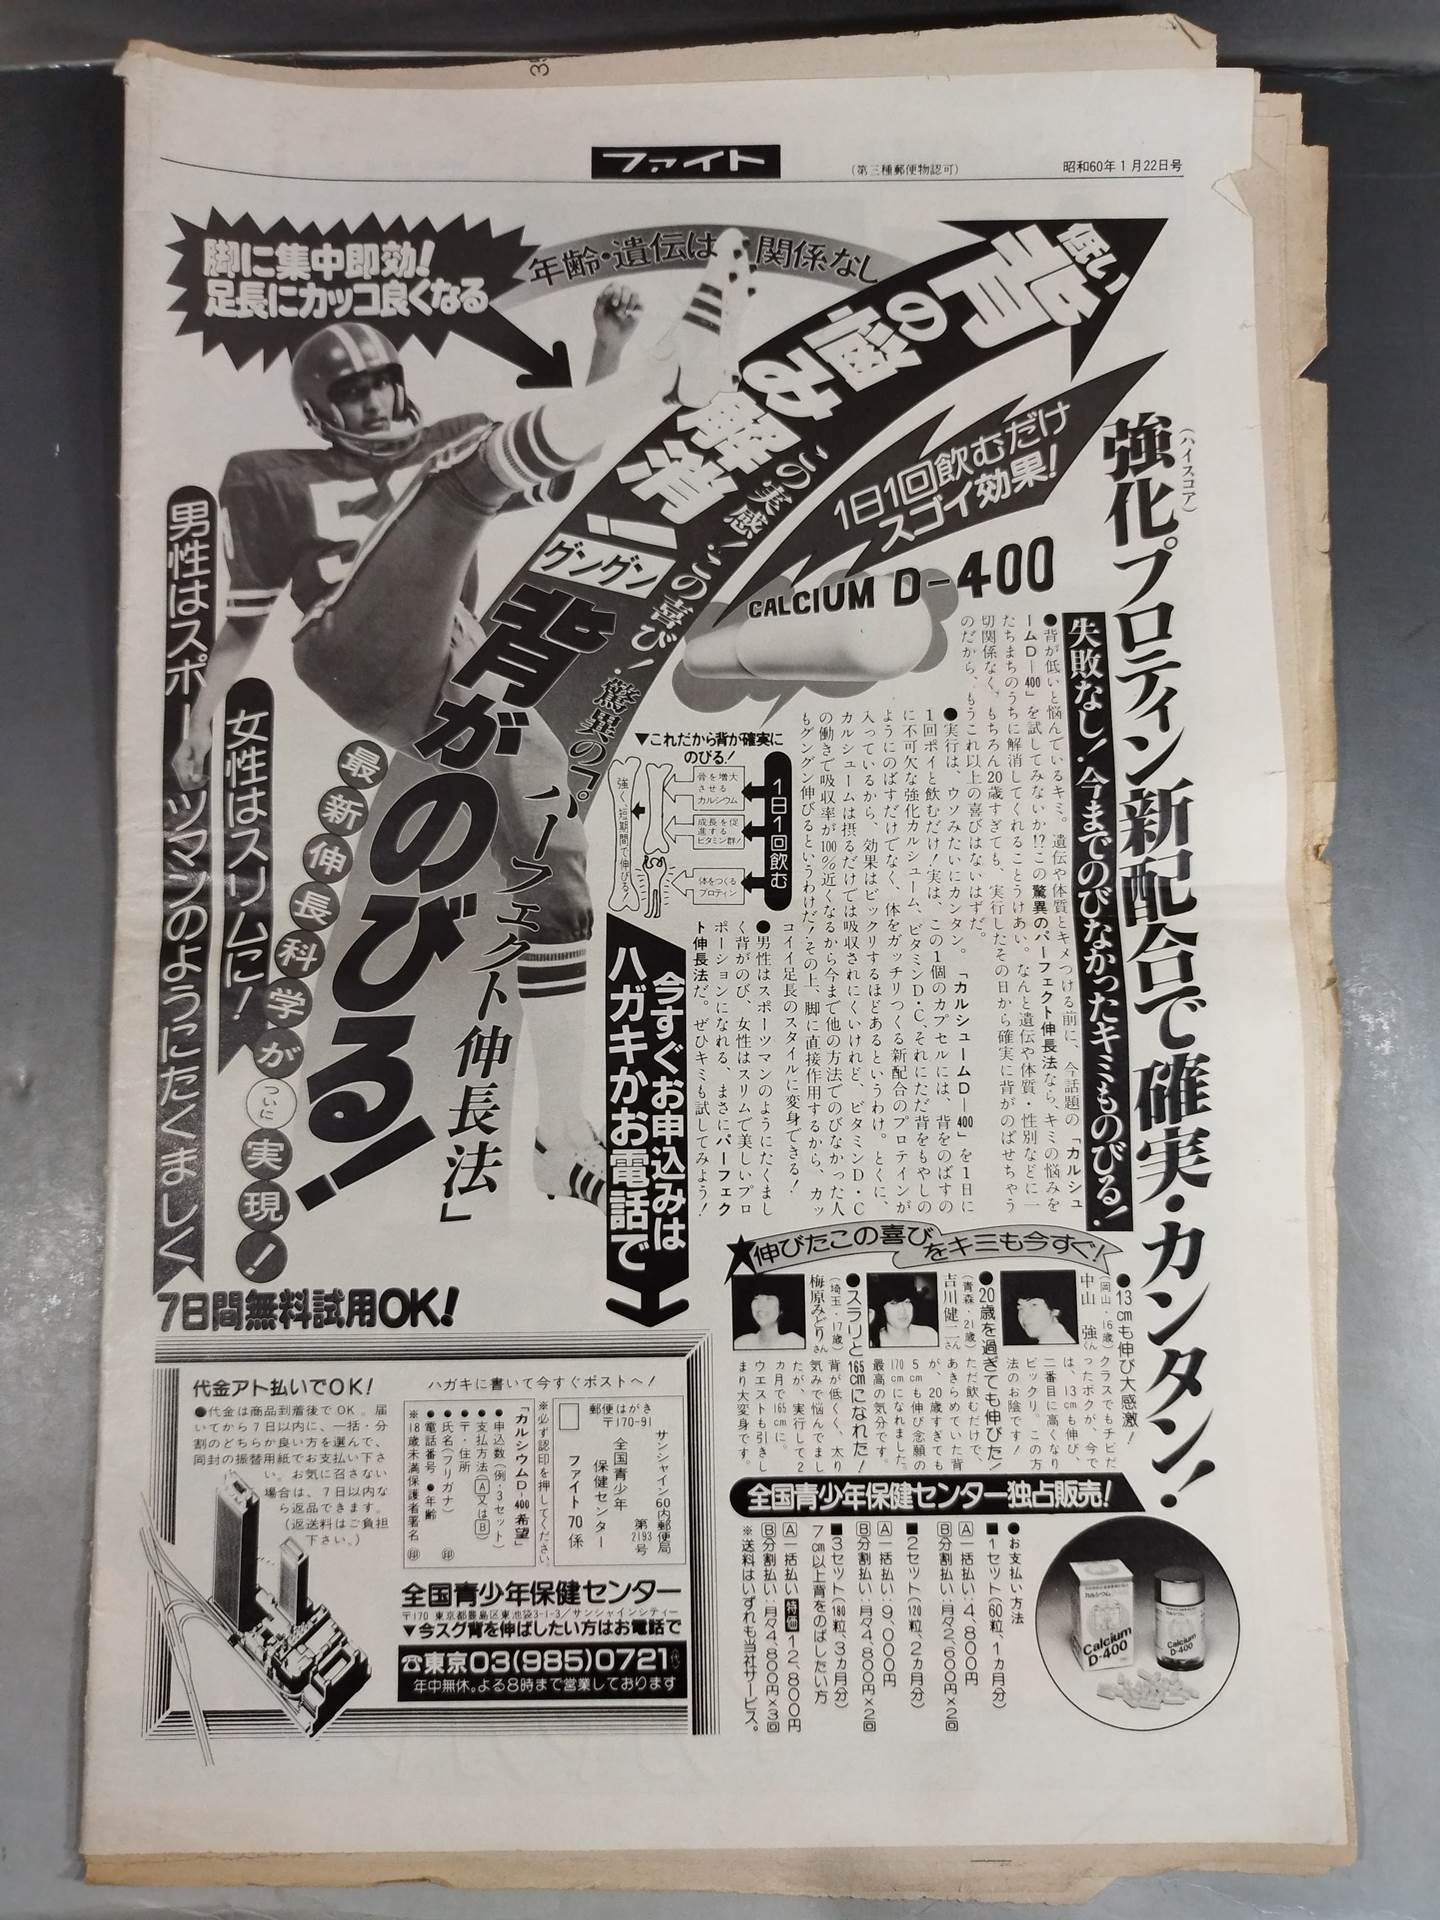 ファイト
(第三種郵便物認可)
昭和60年1月22日号
脚に集中即効!
足長にカッコ良くなる
年齢・遺伝は関係なし
低い
背の悩み解消!
この実感!この喜び!
1日1回飲むだけ
スゴイ効果!
CALCIUM D-400
(ハイスコア)
強化プロティン新配合で確実・カンタン!
失敗なし!今までのびなかったキミものびる!
グングン
背がのびる!
驚異の「パーフェクト伸長法」
男性はスポーツマンのようにたくましく
女性はスリムに!
最新伸長科学がついに実現!
●背が低いと悩んでいるキミ。遺伝や体質とキメつける前に、今話題の「カルシュ
ームD-400」を試してみないか!?この驚異のパーフェクト伸長法なら、キミの悩みを
たちまちのうちに解消してくれることうけあい。なんと遺伝や体質・性別などに一
切関係なく、もちろん20歳すぎても、実行したその日から確実に背がのばせちゃう
のだから、もうこれ以上の喜びはないはずだ。
●実行は、ウソみたいにカンタン。「カルシュームD-400」を1日に
1回ポイと飲むだけ!実は、この1個のカプセルには、背をのばすの
に不可欠な強化カルシューム、ビタミンD・C、それにただ背をもやしの
ようにのばすだけでなく、体をガッチリつくる新配合のプロテインが
入っているから、効果はビックリするほどあるというわけ。とくに、
カルシュームは摂るだけでは吸収されにくいけれど、ビタミンD・C
の働きで吸収率が100%近くなるから今まで他の方法でのびなかった人
もグングン伸びるというわけだ!その上、脚に直接作用するから、カッ
コイイ足長のスタイルに変身できる!
●男性はスポーツマンのようにたくまし
く背がのび、女性はスリムで美しいプロ
ポーションになれる、まさにパーフェク
ト伸長法だ。ぜひキミも試してみよう!
▼これだから背が確実に
のびる!
1日1回飲む
骨を増大
させる
カルシウム
成長を促
進する
ビタミン群!
体をつくる
プロティン
強く、短期間で伸びる!
今すぐお申込みは
ハガキかお電話で
★伸びたこの喜びをキミも今すぐ!
●13cmも伸び大感激!
(岡山・16歳)
中山 強くん
クラスでもチビだ
ったボクが、今で
は、13cmも伸び、
二番目に高くなり
ビックリ。この方
法のお陰です!
●20歳を過ぎても伸びた!
(青森・21歳)
吉川健二さん
ただ飲むだけで、
あきらめていた背
が、20歳すぎても
5cmも伸び念願の
170cmになれました。
最高の気分です。
●スラリと165cmになれた!
(埼玉・17歳)
梅原みどりさん
背が低くく、太り
気みで悩んでまし
たが、実行して2
カ月で165cmに。
ウエストも引きし
まり大変身です。
全国青少年保健センター独占販売!
●お支払い方法
■1セット(60粒、1カ月分)
A一括払い:4,800円
B分割払い:月々2,600円×2回
■2セット(120粒、2カ月分)
A一括払い:9,000円
B分割払い:月々4,800円×2回
■3セット(180粒、3カ月分)
7cm以上背をのばしたい方
A一括払い:特価12,800円
B分割払い:月々4,800円×3回
※送料はいずれも当社サービス。
カルシウム
Calcium
D-400
Calcium
D-400
7日間無料試用OK!
代金アト払いでOK!
●代金は商品到着後でOK。届
いてから7日以内に、一括・分
割のどちらか良い方を選んで、
同封の振替用紙でお支払い下さ
い。お気に召さない
場合は、7日以内な
ら返品できます。
(返送料はご負担
下さい。)
ハガキに書いて今すぐポストへ!
郵便はがき
〒170-91
サンシャイン60内郵便局
第2193号
全国青少年
保健センター
ファイト70係
※必ず認印を押してください。
「カルシウムD-400希望」
●申込数(例・3セット)
●支払方法(A又はB)
●〒・住所
●氏名(フリガナ)印
●電話番号 ●年齢
※18歳未満保護者署名印
全国青少年保健センター
〒170 東京都豊島区東池袋3-1-3/サンシャインシティー
▼今スグ背を伸ばしたい方はお電話で
☎東京03(985)0721代
年中無休。よる8時まで営業しております